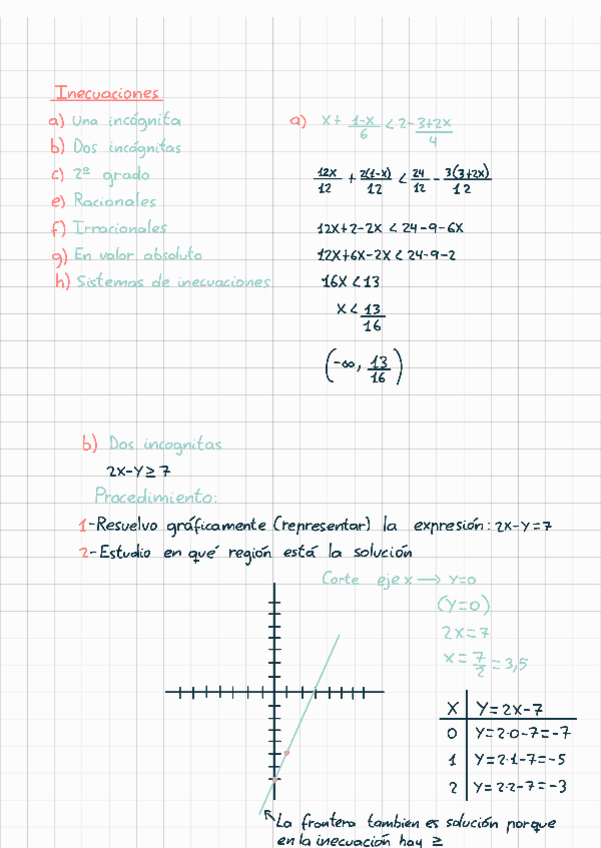 Inecuaciones
a) Una incógnita
b) Dos incógnitas
c) 2º grado
e) Racionales
f) Irracionales
g) En valor absoluto
h) Sistemas de inecuaciones
a) x + (1-x)/6 < 2 - (3+2x)/4
12x/12 + 2(1-x)/12 < 24/12 - 3(3+2x)/12
12x+2-2x < 24-9-6x
12x+6x-2x < 24-9-2
16x < 13
x < 13/16
(-∞, 13/16)
b) Dos incognitas
2x-y ≥ 7
Procedimiento:
1-Resuelvo gráficamente (representar) la expresión: 2x-y=7
2-Estudio en qué región está la solución
Corte eje x → y=0
(y=0)
2x=7
x = 7/2 = 3,5
x | y=2x-7
0 | y=2·0-7=-7
1 | y=2·1-7=-5
2 | y=2·2-7=-3
La frontera tambien es solución porque
en la inecuación hay ≥